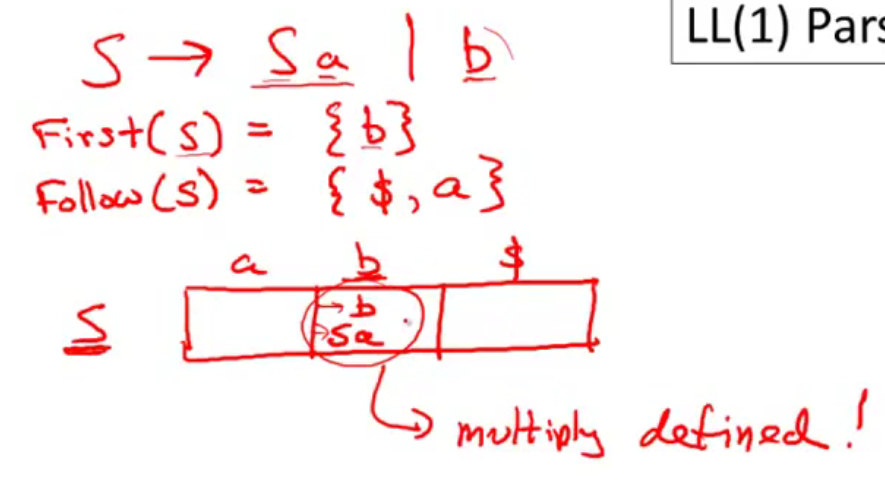 LL(1) Pars
S → Sa | b
First(S) = {b}
Follow(S) = {$, a}
a b $
S → b
→ Sa
multiply defined!